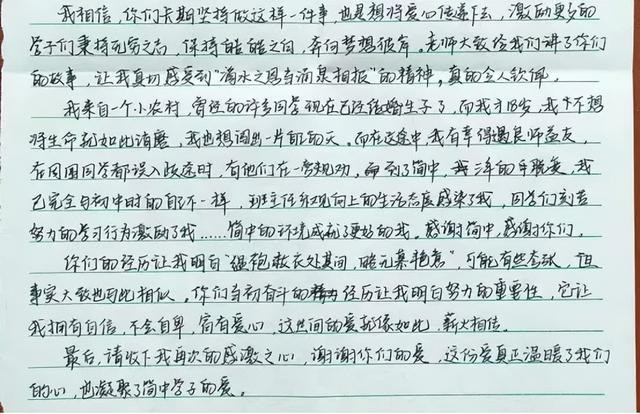 我相信,你们长期坚持做这样一件事,也是想将爱心传递下去,激励更多的
学子们秉持无穷之志,保持皓皓之白,奔向梦想彼岸。老师大致给我们讲了你们
的故事,让我真切感受到“滴水之恩当涌泉相报”的精神,真的令人钦佩。
我来自一个小农村,曾经的许多同学现在已经结婚生子了,而我才18岁,我不想
将生命就如此消磨,我也想闯出一片自己的天。而在这途中,我有幸得遇良师益友,
在周围同学都误入歧途时,有他们在一旁规劝,到了简中,我三年的蜕变,我
已完全与初中时的自己不一样,班主任乐观向上的生活态度感染了我,同学们刻苦
努力的学习行为激励了我……简中的环境成就了更好的我。感谢简中,感谢你们。
你们的经历让我明白“缊袍敝衣处其间,略无慕艳意”,可能有些夸张,但
事实大致也与此相似。你们当初奋斗的经历让我明白努力的重要性,它让
我拥有自信,不会自卑,富有爱心,这世间的爱就像如此,薪火相传。
最后,请收下我再次的感激之心,谢谢你们的爱,这份爱真正温暖了我们
的心,也凝聚了简中学子的爱。